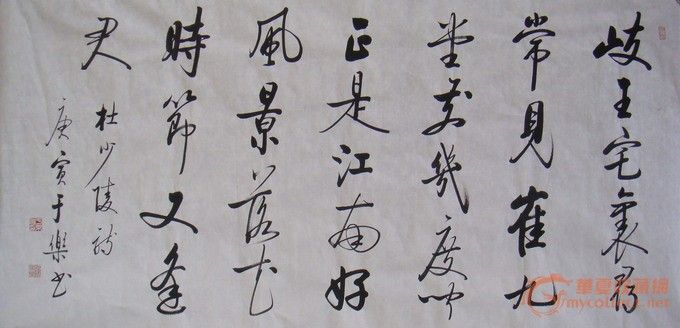 岐王宅裏尋
常見崔九
堂前幾度聞
正是江南好
風景落花
時節又逢
君
杜少陵詩
庚寅于樂書
華夏收藏網
mycollect.net